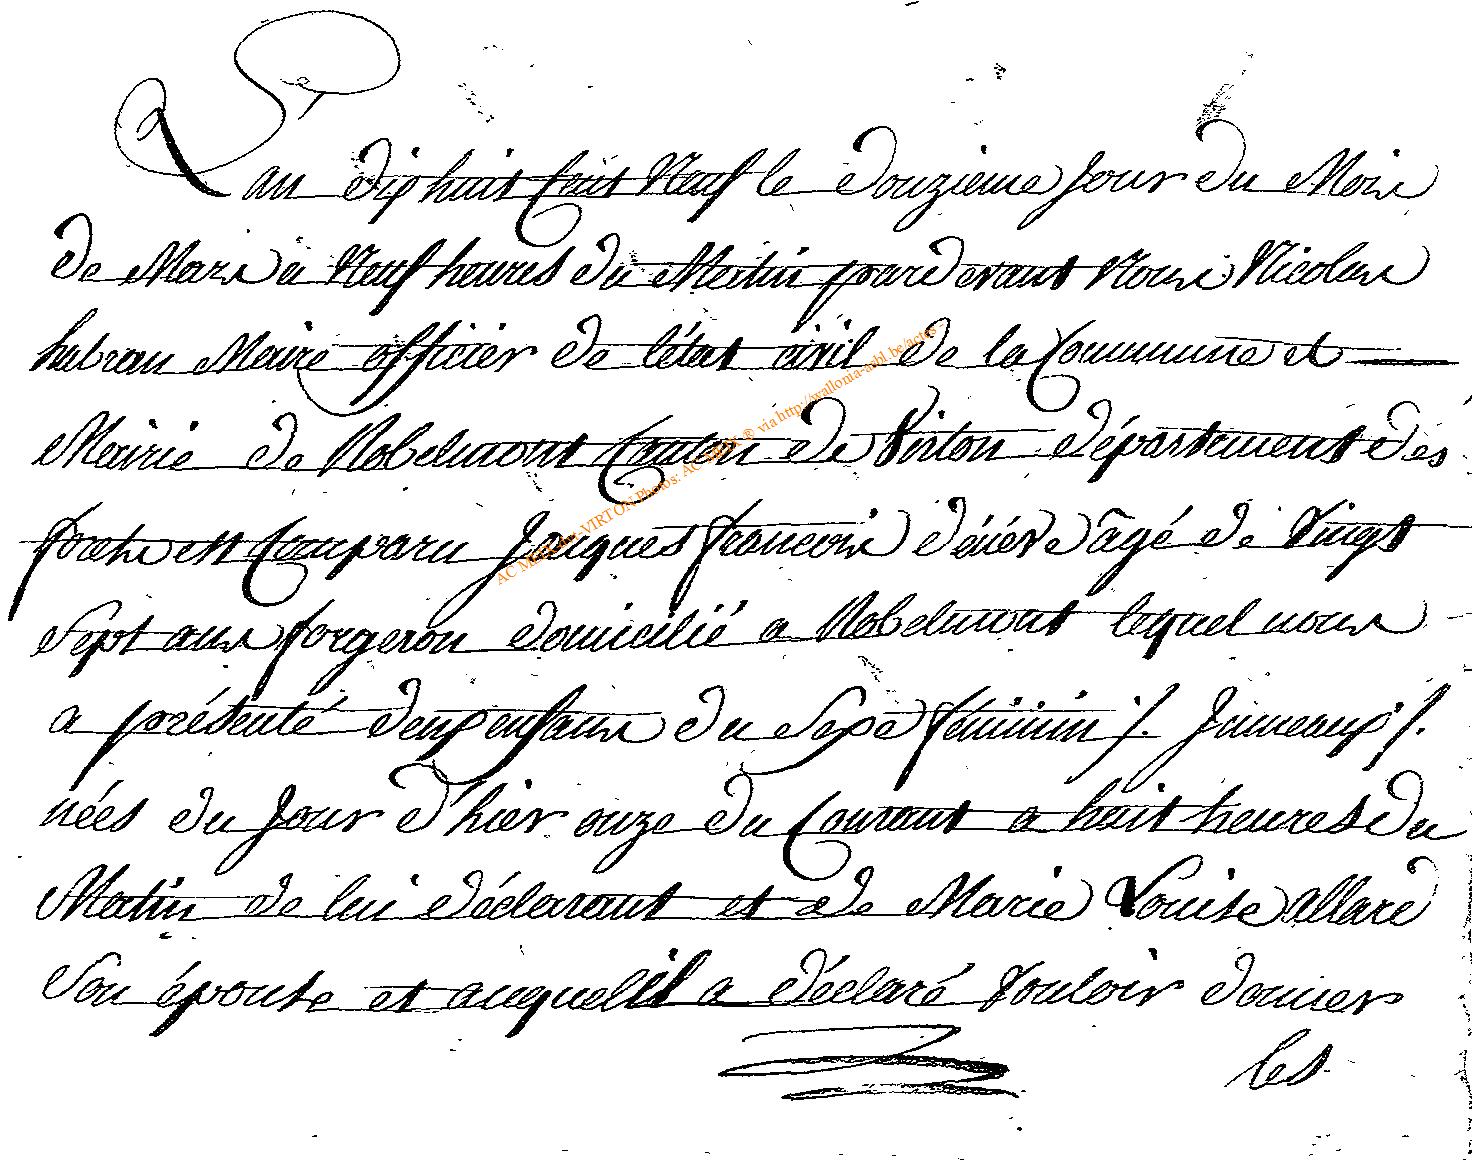 L'an dix huit Cent Neuf le douzieme Jour du Mois
de Mars a Neuf heures du Matin pardevant Nous Nicolas
habran Maire officier de l'état civil de la Commune et
Mairie de Robelmont Canton de Virton département des
forets est Comparu Jacques francois âgé de Vingt
Sept ans forgeron domicilié a Robelmont lequel nous
a présenté deux enfans du Sexe féminin /. Jumeaux /.
nées du Jour d'hier onze du Courant a huit heures du
Matin de lui déclarant et de Marie Louise allard
Son épouse et auquel il a déclaré Vouloir donner
les
AC Meix-dvt-VIRTON Photos: AC MEIX ® via http://wallonia-asbl.be/actes